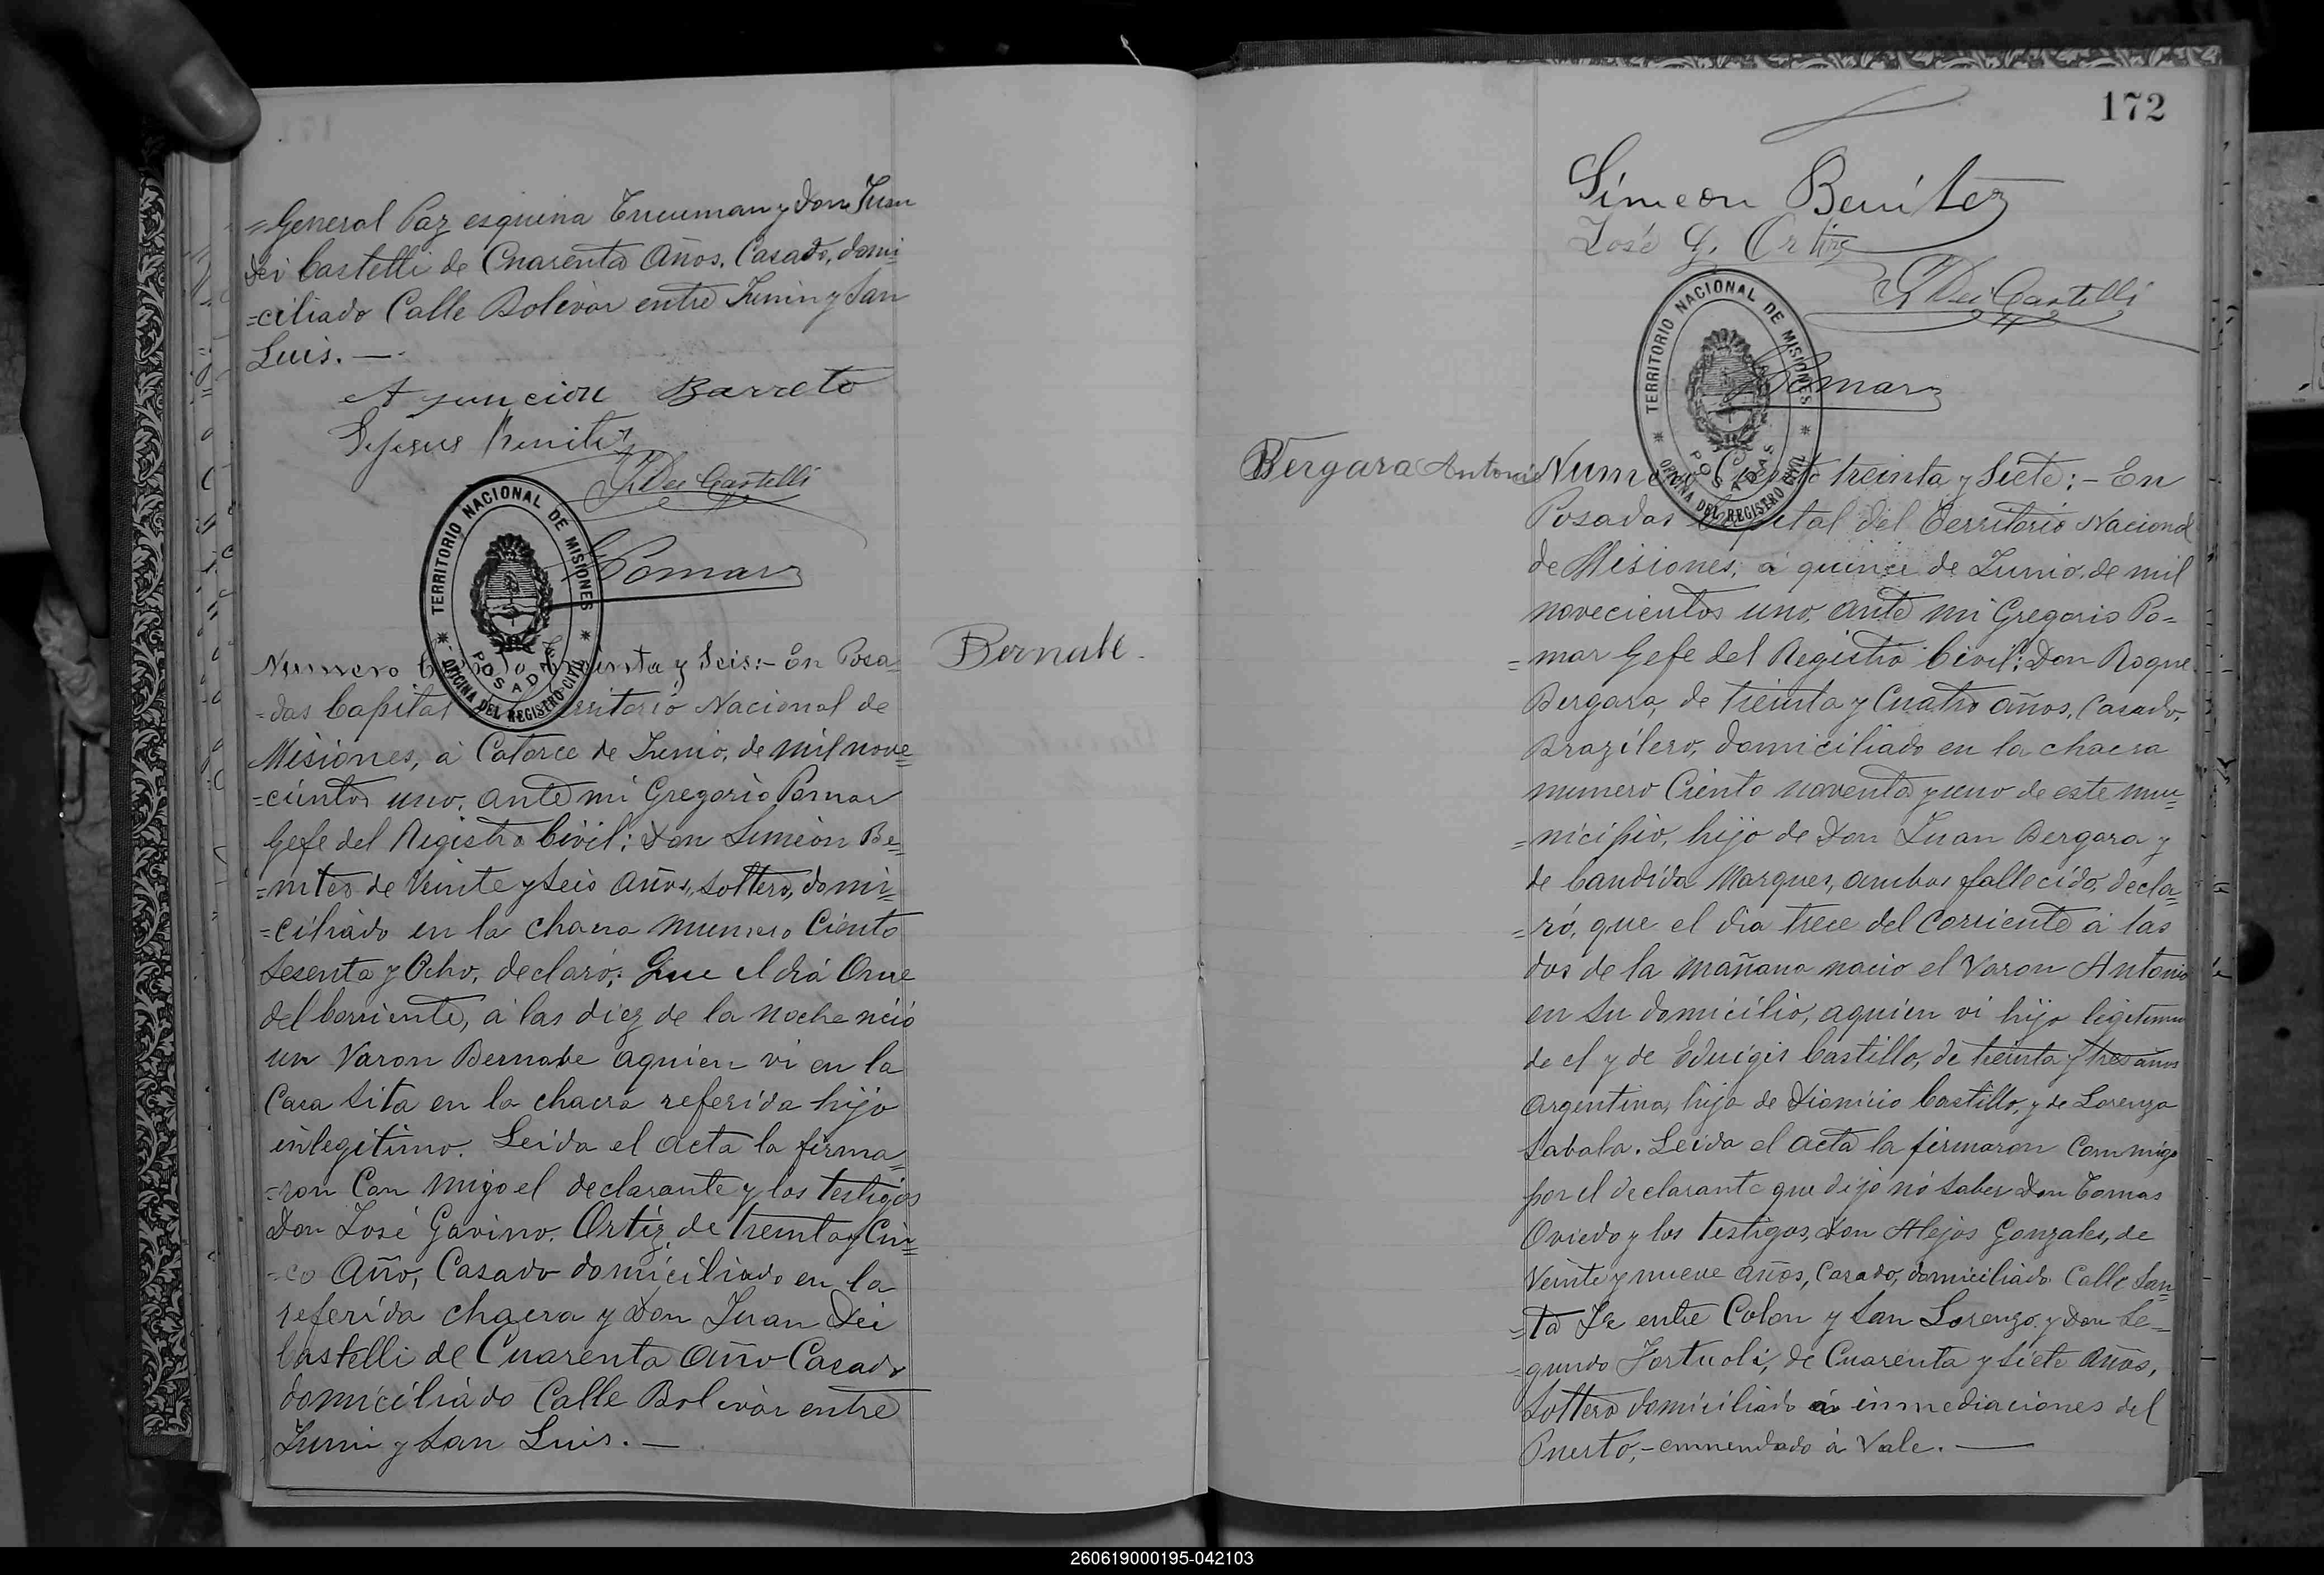 =General Paz esquina Tucuman y Don Juan
Dei Castelli de Cuarenta Años, Casado, domi=
=ciliado Calle Bolivar entre Junin y San
Luis. —
Asuncion Barreto
Dejesus Benites
J. Dei Castelli
TERRITORIO NACIONAL DE MISIONES
OFICINA DEL REGISTRO CIVIL
POSADAS
GPomar
Numero Ciento treinta y Seis:- En Posa
=das Capital del Territorio Nacional de
Misiones, á Catorce de Junio, de mil nove=
=cientos uno, ante mi Gregorio Pomar
Gefe del Registro Civil: Don Simeon Be=
=nites de Veinte y seis Años, soltero, domi=
=ciliado en la chacra numero Ciento
Sesenta y Ocho, declaró: Que el diá Once
del Corriente, á las diez de la noche nció
un Varon Bernabe aquien vi en la
Casa sita en la chacra referida hijo
inlegitimo. Leida el acta la firma=
=ron Con migo el declarante y los testigos
Don José Gavino Ortiz de treinta y Cin=
=co Año, Casado domiciliado en la
referida chacra y Don Juan Dei
Castelli de Cuarenta Año Casado
domiciliado Calle Bolivar entre
Juni y San Luis. —
Bernabe.
172
Simeon Benitez
José G. Ortiz
J. Dei Castelli
TERRITORIO NACIONAL DE MISIONES
OFICINA DEL REGISTRO CIVIL
POSADAS
GPomar
Bergara Antonio
Numero Ciento treinta y Siete:- En
Posadas Capital del Territorio Nacional
de Misiones, á quince de Junio, de mil
novecientos uno, ante mi Gregorio Po=
=mar Gefe del Registro Civil: Don Roque
Bergara, de treinta y Cuatro años, Casado,
Brazilero, domiciliado en la chacra
numero Ciento noventa y uno de este mu=
=nicipio, hijo de Don Juan Bergara y
de Candida Marques, ambos fallecido, decla=
=ró, que el dia trece del Corriente á las
dos de la mañana nacio el Varon Antonio
en su domicilio, aquien vi hijo legitimo
de el y de Eduigis Castillo, de treinta y tres años
Argentina, hija de Dionicio Castillo, y de Lorenza
Sabala. Leida el acta la firmaron Conmigo
por el declarante que dijo nó saber Don Tomas
Oviedo y los testigos, Don Alejos Gonzales, de
Veinte y nueve años, Casado, domiciliado Calle San=
=ta Fe entre Colon y San Lorenzo, y Don Se=
=gundo Fortuoli, de Cuarenta y siete Años,
Soltero domiciliado á inmediaciones del
Puerto,- enmendado á Vale. —
260619000195-042103